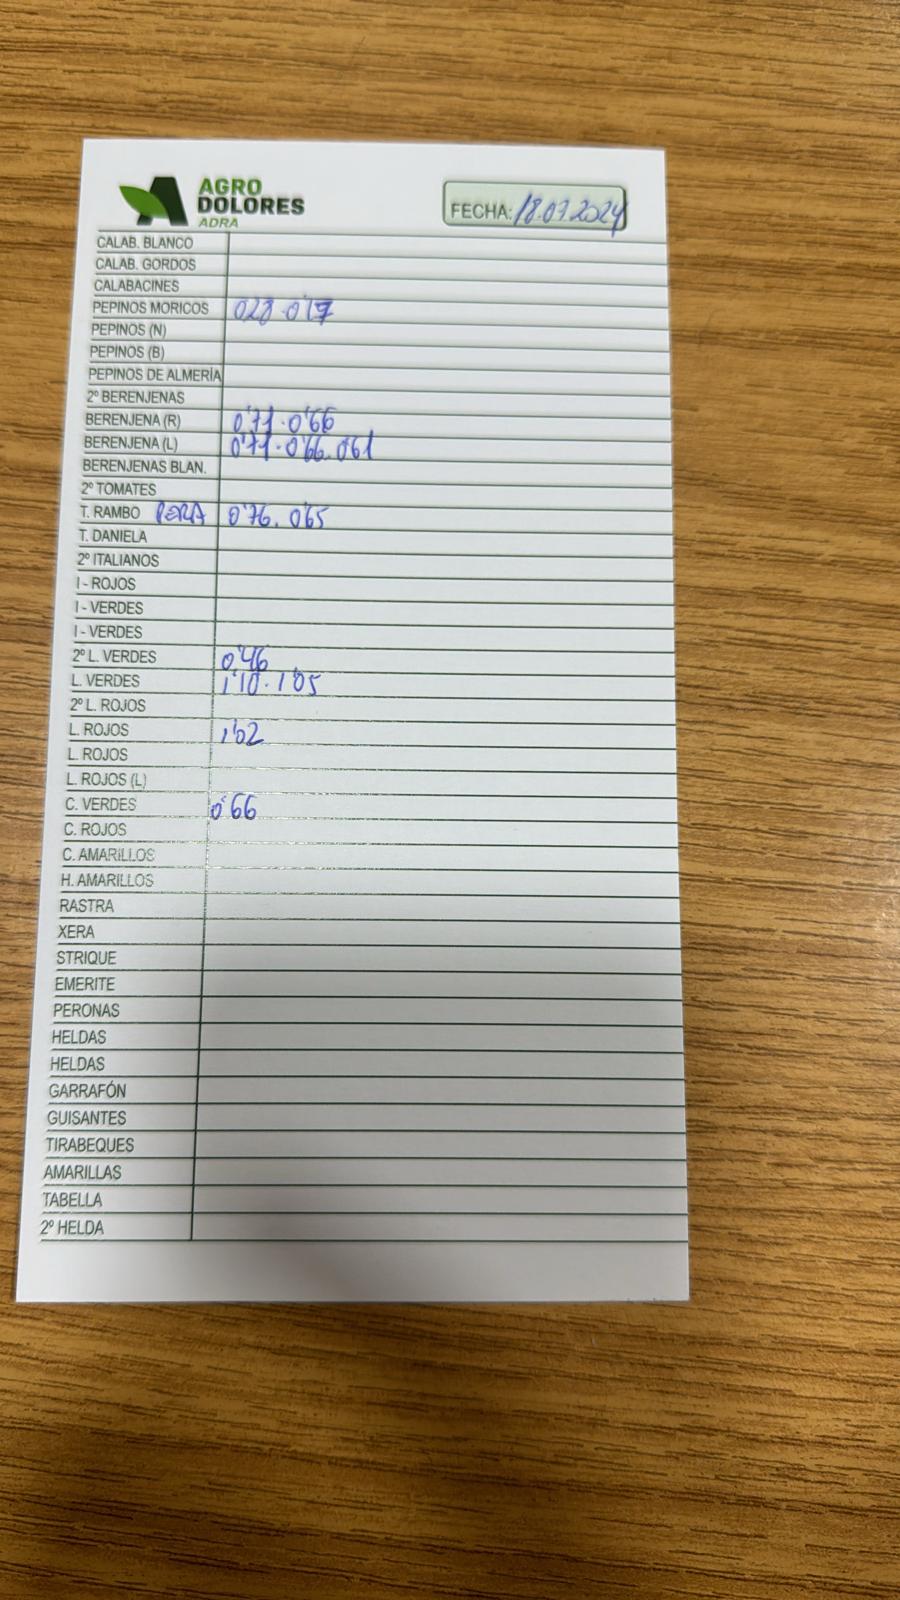 AGRO
DOLORES
ADRA
FECHA: 18.07.2024
CALAB. BLANCO
CALAB. GORDOS
CALABACINES
PEPINOS MORICOS 028.0'17
PEPINOS (N)
PEPINOS (B)
PEPINOS DE ALMERÍA
2º BERENJENAS
BERENJENA (R) 0'71.0'66
BERENJENA (L) 0'71.0'66.061
BERENJENAS BLAN.
2º TOMATES
T. RAMBO PERA 0'76.065
T. DANIELA
2º ITALIANOS
I - ROJOS
I - VERDES
I - VERDES
2º L. VERDES 0'46
L. VERDES 1'10.1'05
2º L. ROJOS
L. ROJOS 1'02
L. ROJOS
L. ROJOS (L)
C. VERDES 0'66
C. ROJOS
C. AMARILLOS
H. AMARILLOS
RASTRA
XERA
STRIQUE
EMERITE
PERONAS
HELDAS
HELDAS
GARRAFÓN
GUISANTES
TIRABEQUES
AMARILLAS
TABELLA
2º HELDA